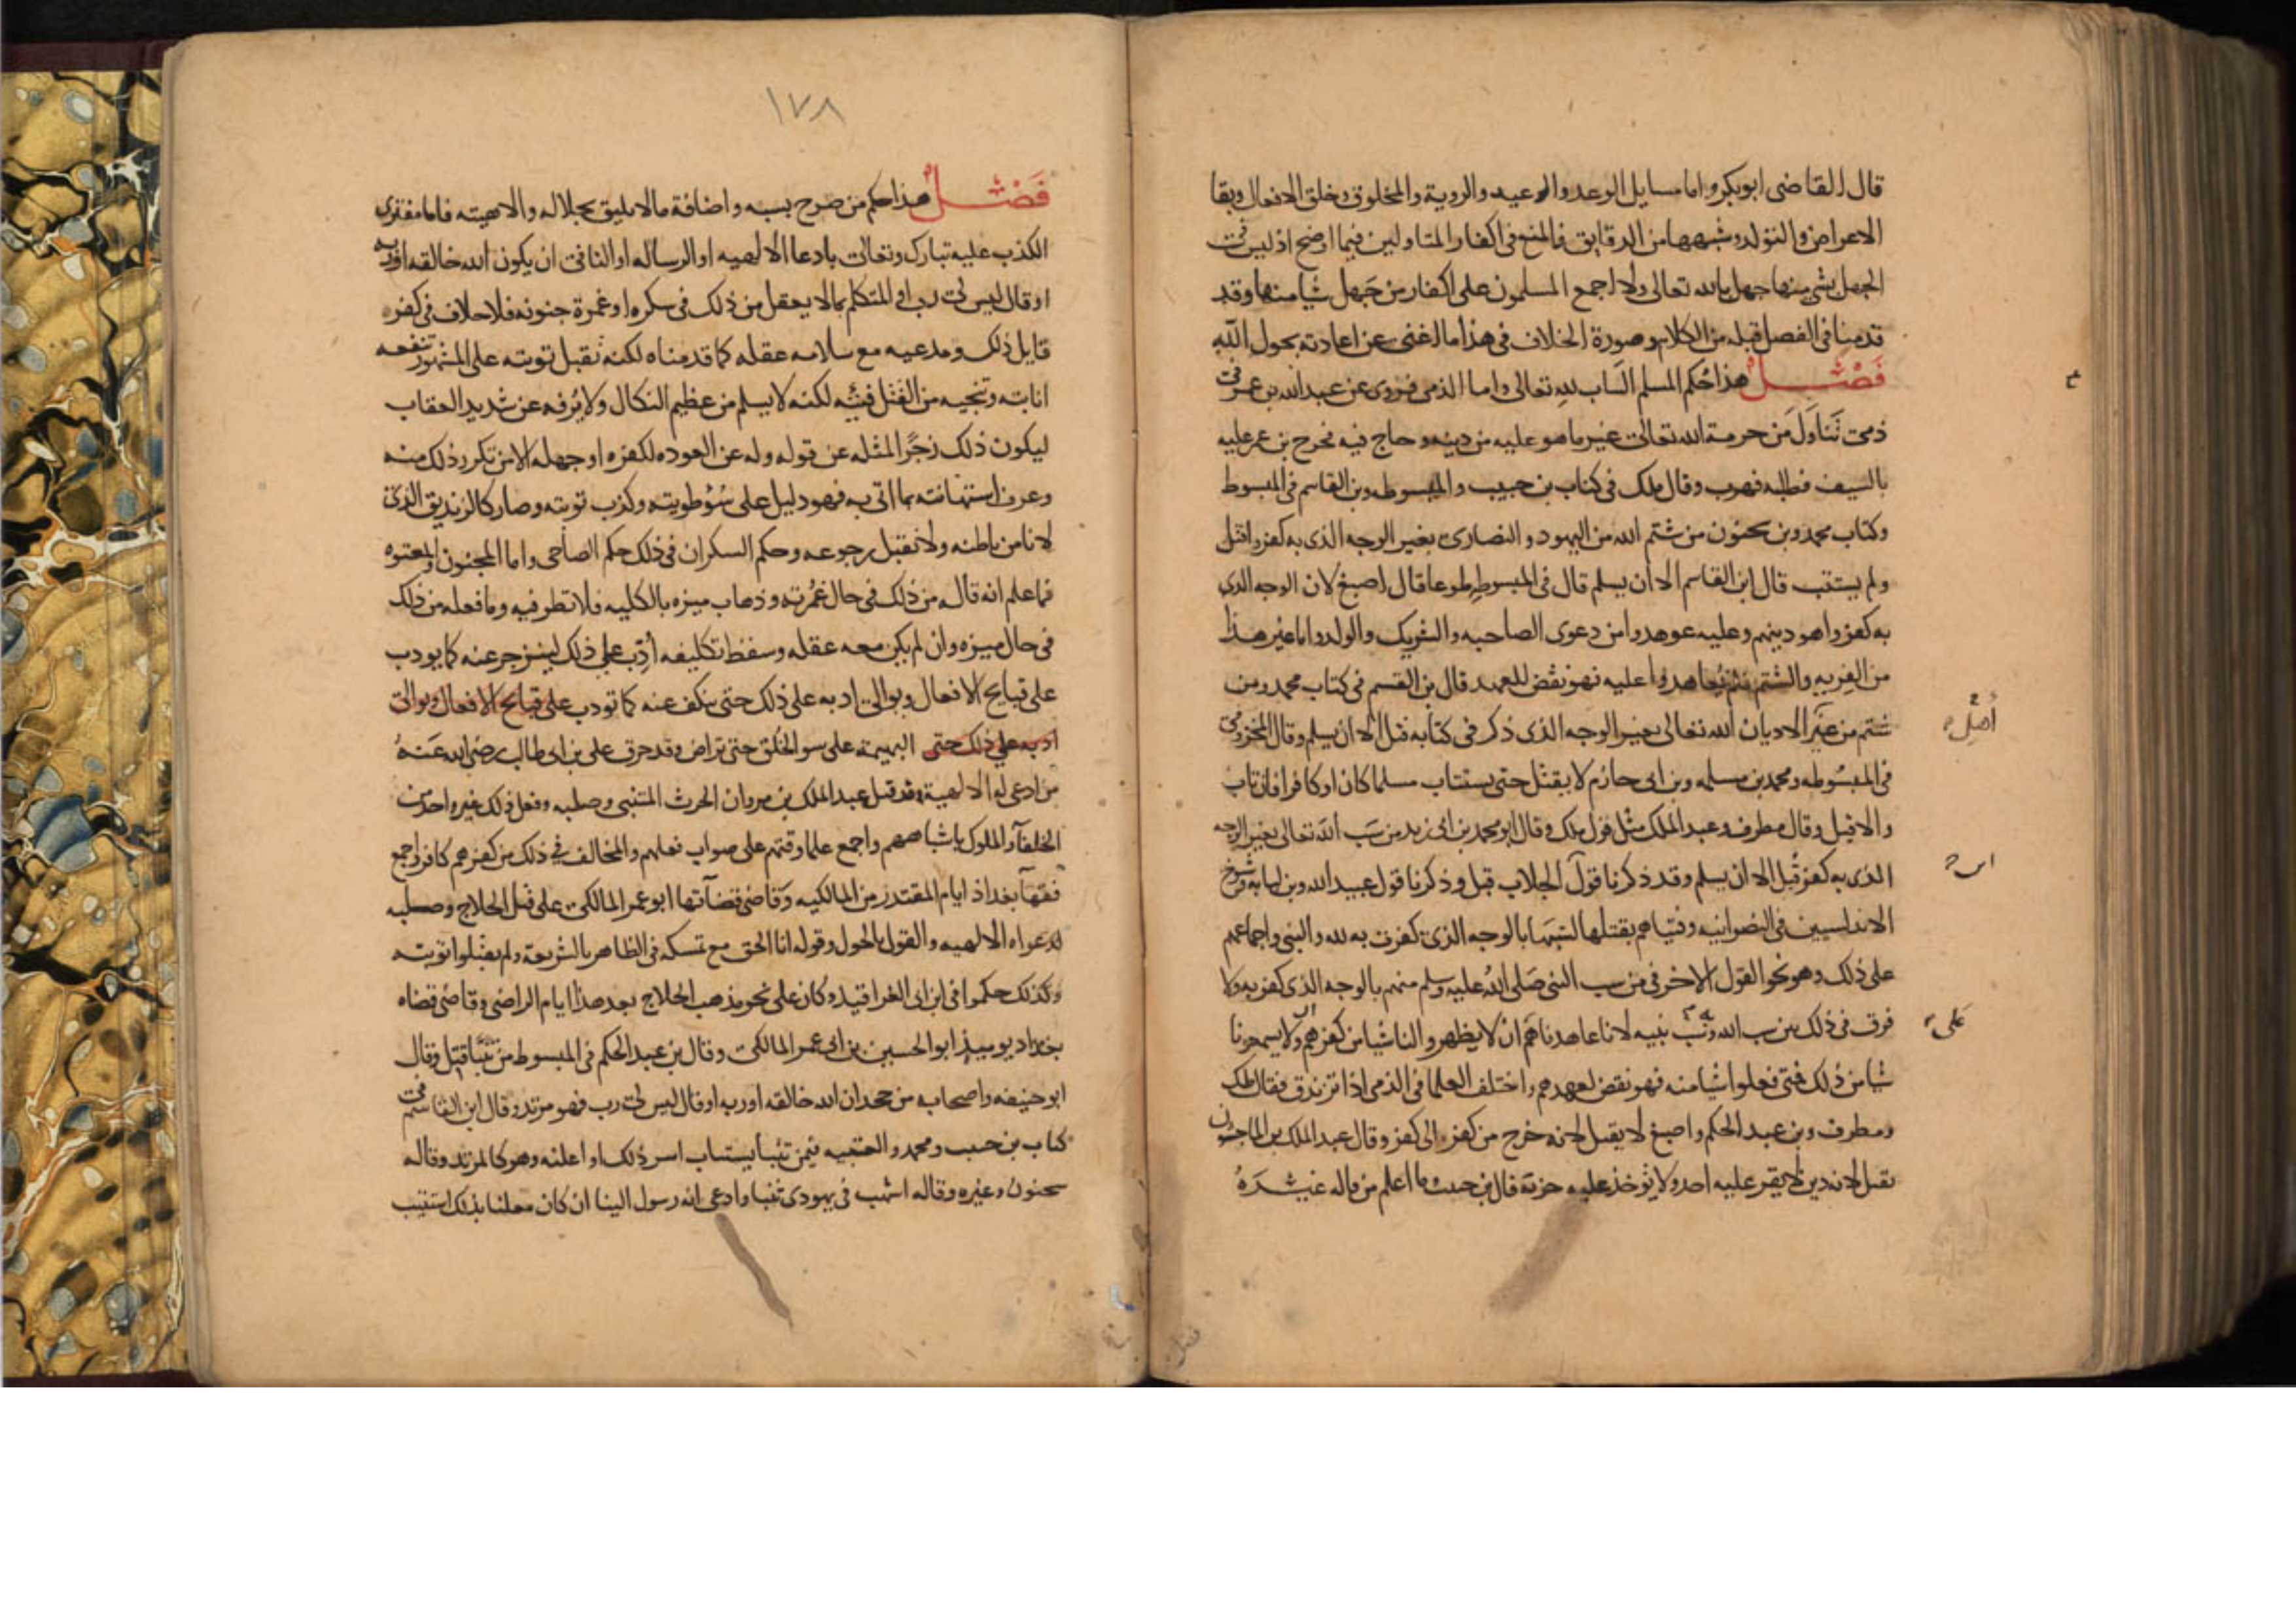 قال القاضى ابو بكر واما مسايل الوعد والوعيد والروية والمخلوق وخلق الافعال وبقا
الاعراض والتولد وشبهها من الدقايق فالمنع فى اكفار المتاولين فيها اوضح اذ ليس فى
الجهل بشى منها جهل بالله تعالى ولا اجمع المسلمون على اكفار من جهل شيا منها وقد
قدمنا فى الفصل قبله من الكلام وصورة الخلاف فى هذا ما اغنى عن اعادته بحول الله
فصل هذا حكم المسلم الساب لله تعالى واما الذمى فروى عن عبد الله بن عمر فى
ذمى تناول من حرمة الله تعالى غير ما هو عليه من دينه وحاج فيه فخرج بن عمر عليه
بالسيف فطلبه فهرب وقال ملك فى كتاب بن حبيب والمبسوطه وبن القاسم فى المبسوط
وكتاب محمد وبن سحنون من شتم الله من اليهود والنصارى بغير الوجه الذى به كفروا قتل
ولم يستتب قال ابن القاسم الا ان يسلم قال فى المبسوط طوعا قال اصبغ لان الوجه الذى
به كفروا هو دينهم وعليه عوهدوا من دعوى الصاحبه والشريك والولد واما غير هذا
من الفريه والشتم فلم يعاهدوا عليه فهو نقض للعهد قال بن القسم فى كتاب محمد ومن
شتم من غير الادیان الله تعالى بغير الوجه الذى ذكر فى كتابه قتل الا ان يسلم وقال المخزومى
أهل
فى المبسوطه ومحمد بن مسلمه وبن ابى حازم لا يقتل حتى يستتاب مسلما كان او كافرا فان تاب
والا قتل وقال مطرف وعبد الملك مثل قول ملك وقال ابو محمد بن ابى زيد من سب الله تعالى بغير الوجه
الذى به كفر قتل الا ان يسلم وقد ذكرنا قول الجلاب قبل وذكرنا قول عبيد الله وبن لبابه وشيوخ
الاندلسيين فى النصرانيه وفتياهم بقتلها لسبها بالوجه الذى كفرت به لله والنبى واجماعهم
على ذلك وهو نحو القول الاخر فى من سب النبى صلى الله عليه وسلم منهم بالوجه الذى كفر به ولا
فرق فى ذلك بين سب الله وسب نبيه لانا عاهدناهم ان لا يظهروا لنا شيا من كفرهم ولا يسمعونا
على
شيا من ذلك فمتى فعلوا شيا منه فهو نقض لعهدهم واختلف العلما فى الذمى اذا تزندق فقال ملك
ومطرف وبن عبد الحكم واصبغ لا يقتل لانه خرج من كفر الى كفر وقال عبد الملك بن الماجشون
يقتل لانه دين لا يقر عليه احد ولا يوخذ عليه جزية قال بن حبيب ما اعلم من قاله غيره
١٧٨
فصل هذا حكم من صرح بسبه واضافة ما لا يليق بجلاله والاهيته فاما مفترى
الكذب عليه تبارك وتعالى بادعا الالهيه او الرساله او النافى ان يكون الله خالقه او ربه
او قال ليس لى رب او المتكلم بما لا يعقل من ذلك فى سكره او غمرة جنونه فلا خلاف فى كفر
قايل ذلك ومدعيه مع سلامه عقله كما قدمناه لكنه تقبل توبته على المشهور تنفعه
انابته وتنجيه من القتل فيئته لكنه لا يسلم من عظيم النكال ولا يرفه عن شديد العقاب
ليكون ذلك زجرا لمثله عن قوله وله عن العوده لكفره او جهله الا من تكرر ذلك منه
وعرف استهانته بما اتى به فهو دليل على سوء طويته وكذب توبته وصار كالزنديق الذى
لا نامن باطنه ولا نقبل رجوعه وحكم السكران فى ذلك حكم الصاحى واما المجنون والمعتوه
فما علم انه قاله من ذلك فى حال غمرته وذهاب ميزه بالكليه فلا نظر فيه وما فعله من ذلك
فى حال ميزه وان لم يكن معه عقله وسقط تكليفه أدب على ذلك لينزجر عنه كما يودب
على قبايح الافعال ويوالى ادبه على ذلك حتى ينكف عنه كما تودب على قبايح الافعال ويوالى
ادبه على ذلك حتى البهيمة على سو الخلق حتى تراض وقد حرق على بن ابى طالب رضى الله عنه
من ادعى له الالهية وقد قتل عبد الملك بن مروان الحرث المتنبى وصلبه وفعل ذلك غير واحد من
الخلفآ والملوك باشباههم واجمع علما وقتهم على صواب فعلهم والمخالف فى ذلك من كفرهم كافر واجمع
فقهآ بغداذ ايام المقتدر من المالكيه وقاضى قضآتها ابو عمر المالكى على قتل الحلاج وصلبه
لدعواه الالهيه والقول بالحلول وقوله انا الحق مع تمسكه فى الظاهر بالشريعة ولم يقبلوا توبته
وكذلك حكموا فى ابن ابى الغراقيد وكان على نحو مذهب الحلاج بعد هذا ايام الراضى وقاضى قضاه
بغداد يوميذ ابو الحسين بن ابى عمر المالكى وقال بن عبد الحكم فى المبسوط من تنبا قتل وقال
ابو حنيفه واصحابه من جحد ان الله خالقه او ربه او قال ليس لى رب فهو مرتد وقال ابن القاسم فى
كتاب بن حبيب ومحمد والعتبيه فيمن تنبا يستتاب اسر ذلك او اعلنه وهو كالمرتد وقاله
سحنون وغيره وقاله اشهب فى يهودى تنبا وادعى انه رسول الينا ان كان معلنا بذلك استتيب